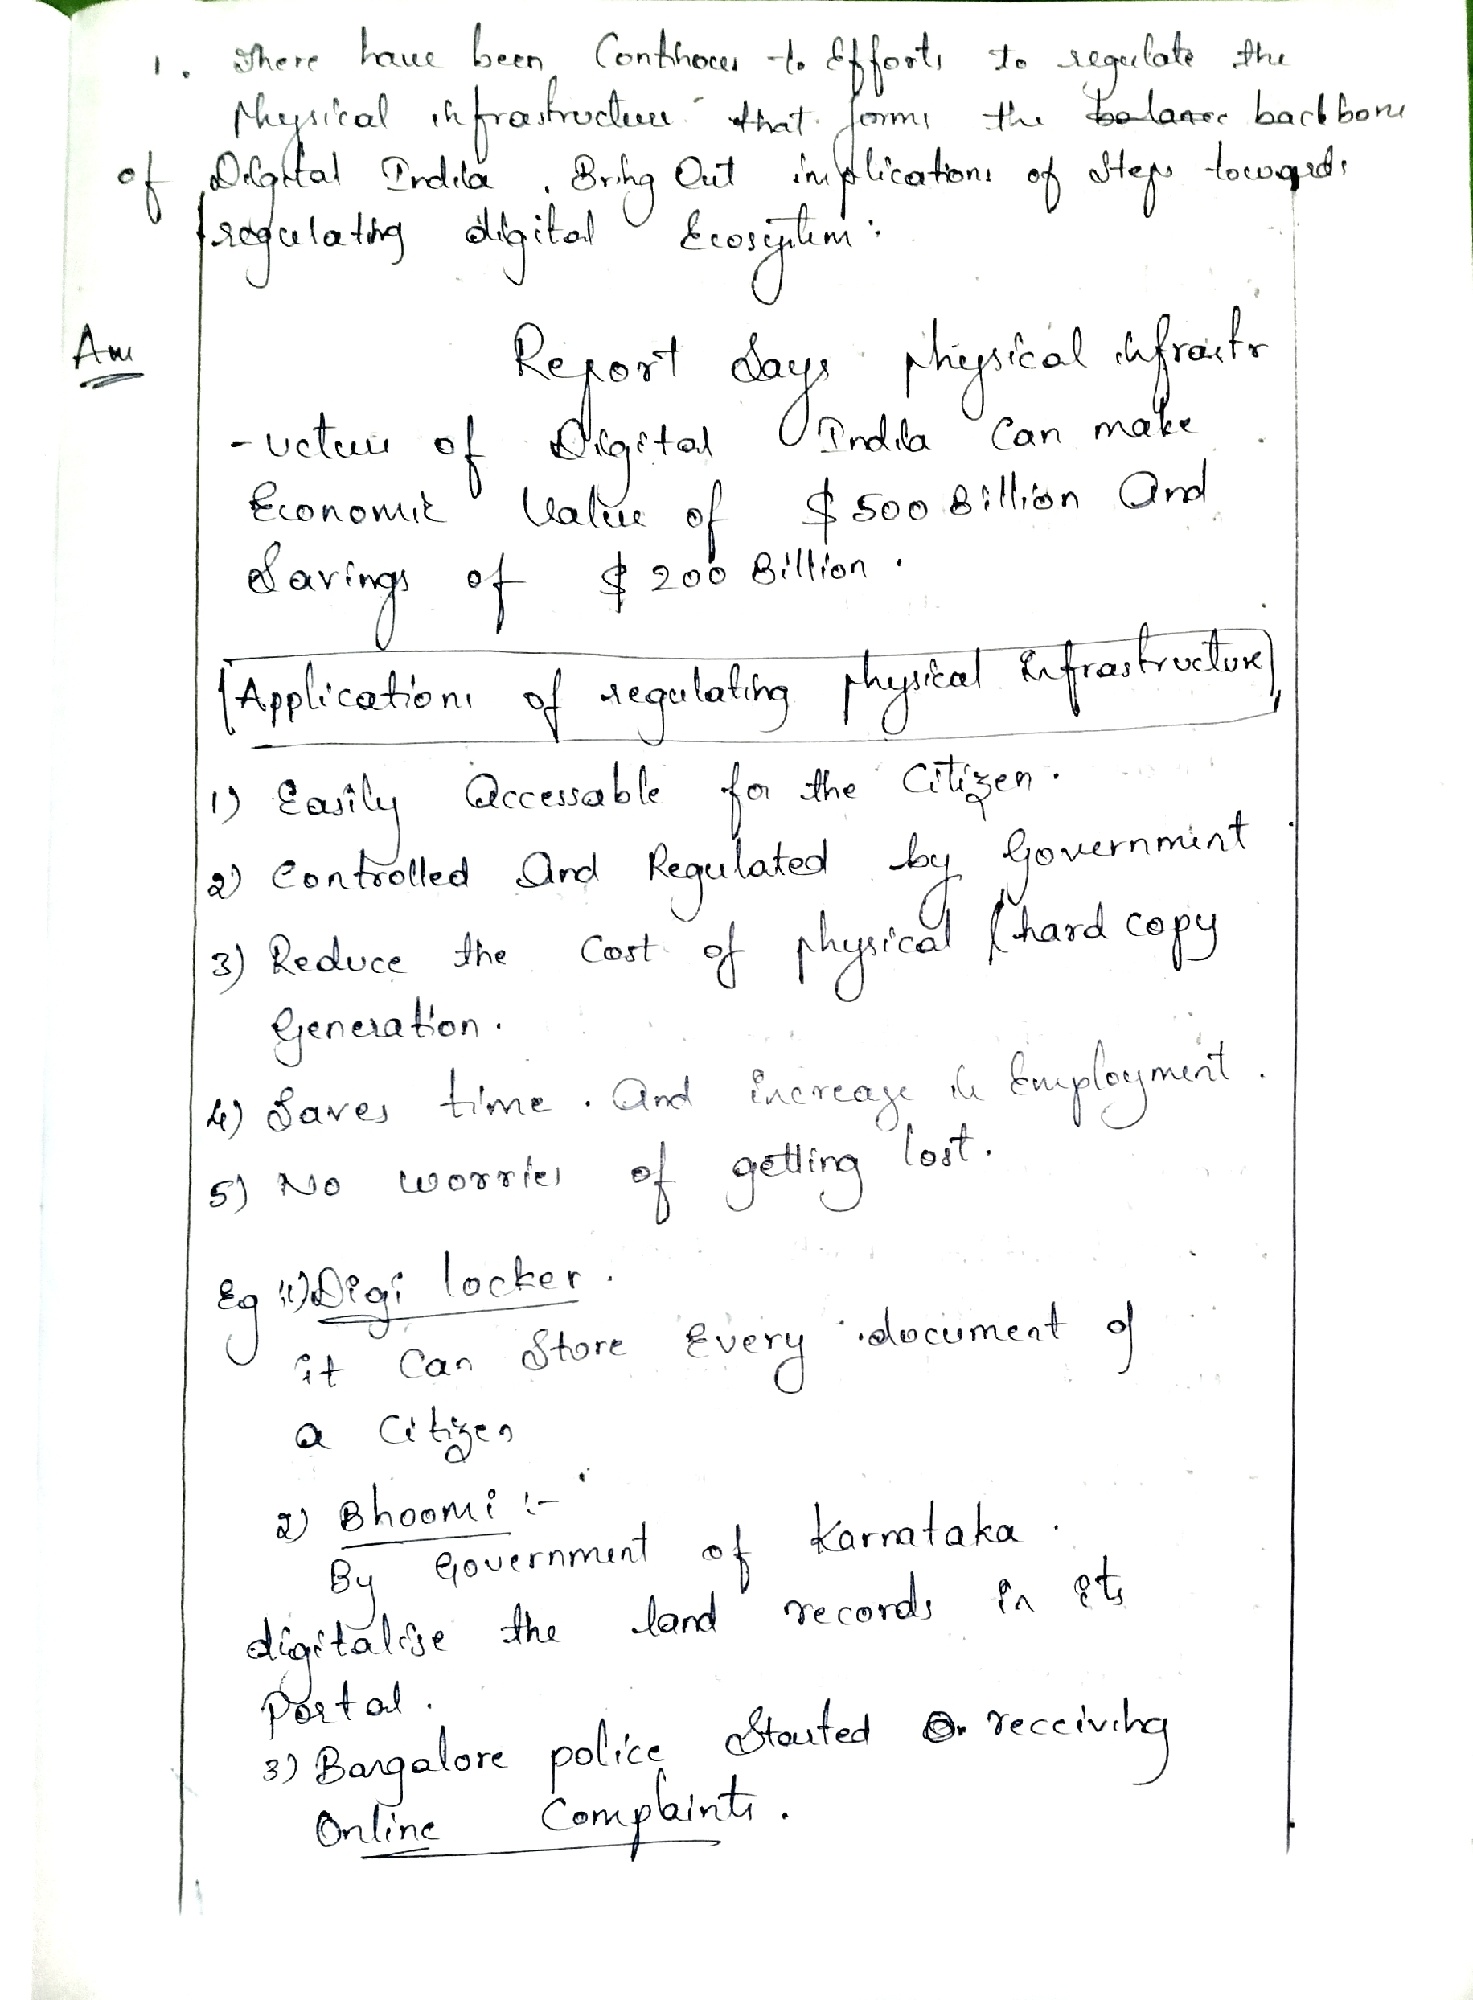 1. There have been Continoues to Efforts to regulate the
Physical infrastructure that forms the balance backbone
of Digital India. Bring Out implications of Steps towards
regulating digital Ecosystem:
Ans
Report Says physical infrastr
-ucture of Digital India Can make
Economic Value of $500 Billion And
Savings of $200 Billion.
Applications of regulating physical Infrastructure
1) Easily Accessable for the Citizen.
2) Controlled And Regulated by Government
3) Reduce the Cost of physical / hard copy
Generation.
4) Saves time. And increase in Employment.
5) No worries of getting lost.
Eg 1) Digi locker.
it Can Store Every document of
a Citizen
2) Bhoomi :-
By Government of Karnataka.
digitalise the land records in its
Portal.
3) Bangalore police Started receiving
Online Complaints.